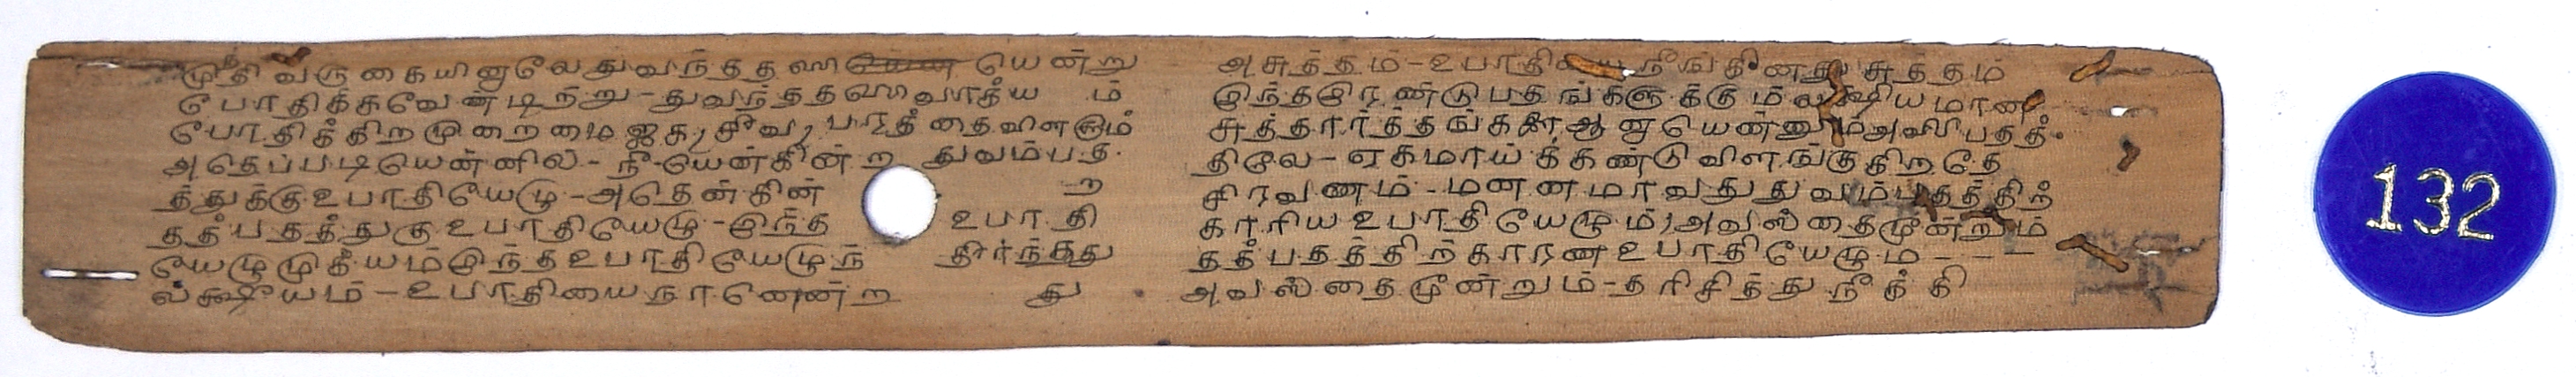 முத்தி வருகையினுலே துவந்ததஸி யென்று
போதிக்கவேண்டிற்று - துவந்ததஸிவாக்ய ம்
போதிக்கிறமுறைமை ஜக, சீவ, பரத்தை விளஞம்
அதெப்படியென்னில் - நீ-யேன்கின்ற துவம்பத
த்துக்கு உபாதியேழு - அதென்கின் ற
தத்பதத்துகு உபாதியேழு - இந்த உபாதி
யேழுமுகீயம் இந்த உபாதி யேழுந் தீர்ந்தது
லக்ஷியம் - உபாதியை நானென்ற து
அசுத்தம் - உபாதி நீங்கினது சுத்தம்
இந்த இரண்டு பதங்களுக்கும் லக்ஷியமான
சுத்தார்த்தங்கள் ஆனுயென்னும் அஸிபதத்
திலே - ஏகமாய்க்கண்டு விளங்குகிறதே
சிரவணம் - மனனமாவது துவம்பதத்திற்
காரிய உபாதி யேழும், அவஸ்தைமூன்றும்
தத்பதத்திற் காரண உபாதியேழும - - -
அவஸ்தைமூன்றும் - தரிசித்து நீக்கி
132